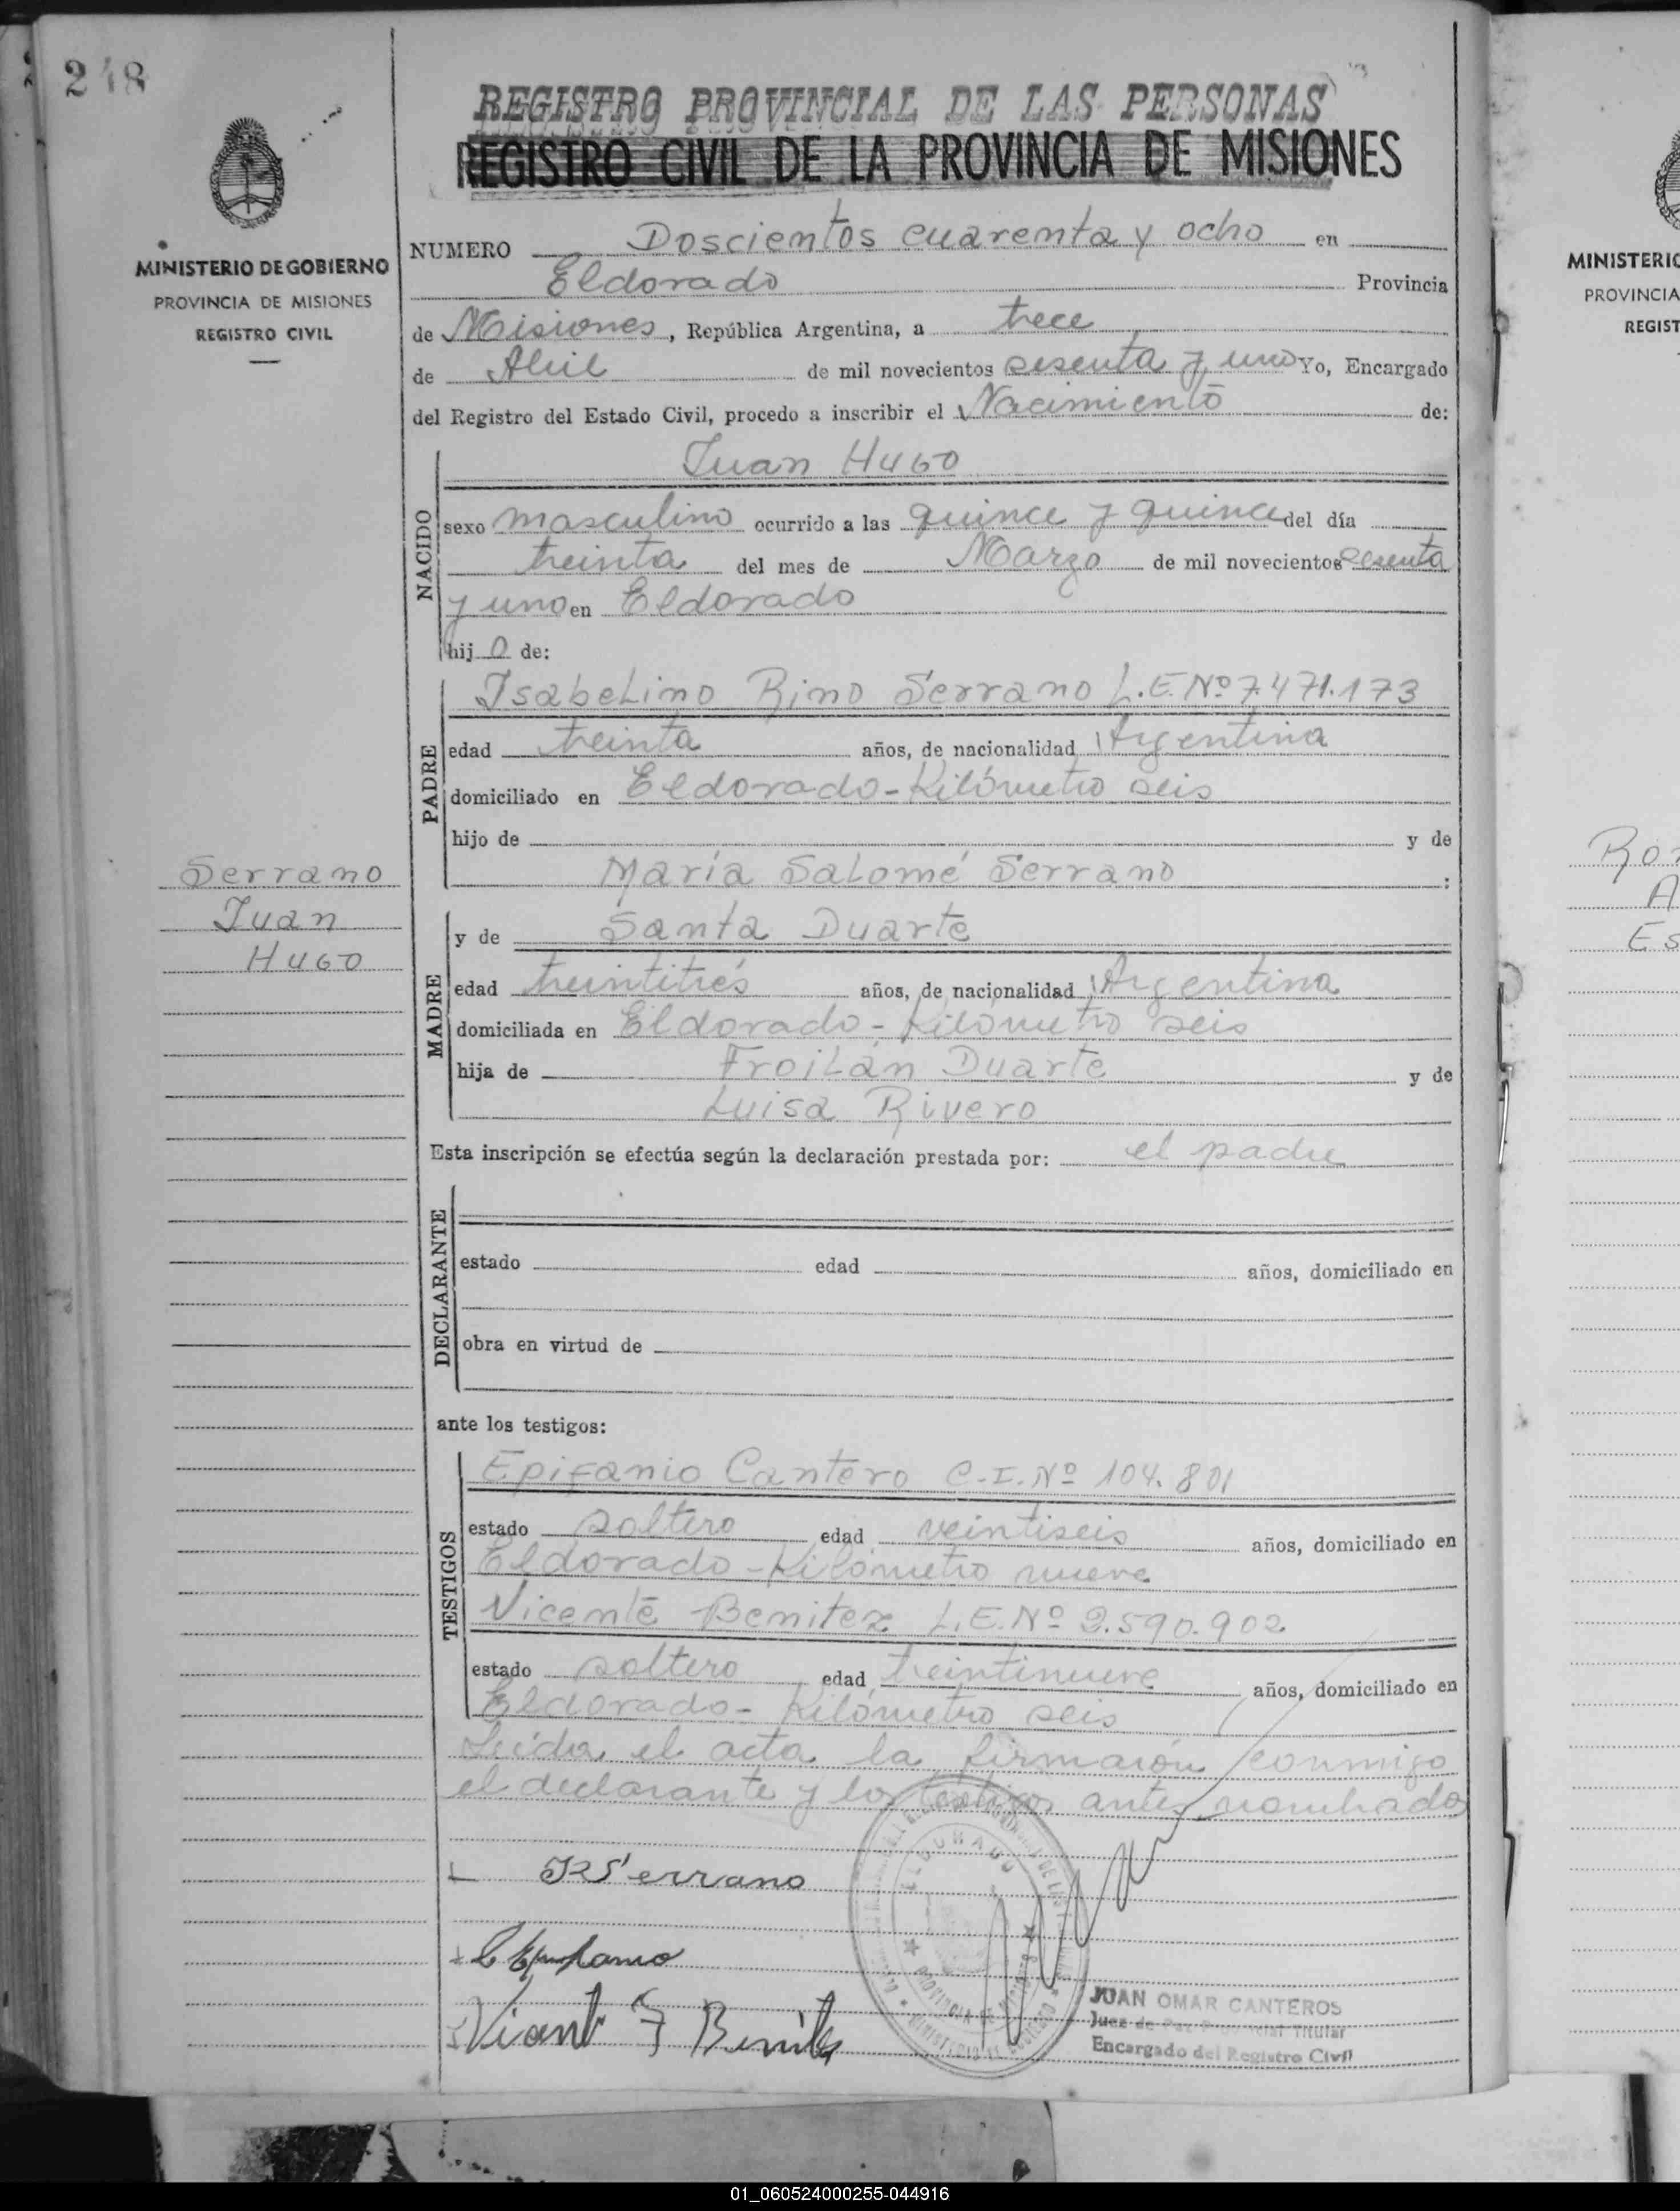 248
REGISTRO PROVINCIAL DE LAS PERSONAS
REGISTRO CIVIL DE LA PROVINCIA DE MISIONES
MINISTERIO DE GOBIERNO
PROVINCIA DE MISIONES
REGISTRO CIVIL
NUMERO Doscientos cuarenta y ocho en
Eldorado Provincia
de Misiones, República Argentina, a trece
de Abril de mil novecientos sesenta y uno Yo, Encargado
del Registro del Estado Civil, procedo a inscribir el Nacimiento de:
NACIDO
Juan Hugo
sexo masculino ocurrido a las quince y quince del día
treinta del mes de Marzo de mil novecientos sesenta
y uno en Eldorado
hijo de:
PADRE
Isabelino Rino Serrano L.E.Nº 7.471.173
edad treinta años, de nacionalidad Argentina
domiciliado en Eldorado-Kilómetro seis
hijo de y de
María Salomé Serrano ;
Serrano
Juan
Hugo
MADRE
y de Santa Duarte
edad treintitrés años, de nacionalidad Argentina
domiciliada en Eldorado-Kilómetro seis
hija de Froilán Duarte y de
Luisa Rivero
Esta inscripción se efectúa según la declaración prestada por: el padre
DECLARANTE
estado edad años, domiciliado en
obra en virtud de
ante los testigos:
TESTIGOS
Epifanio Cantero C.I.Nº 104.801
estado soltero edad veintiseis años, domiciliado en
Eldorado-Kilómetro nueve
Vicente Benitez L.E.Nº 2.590.902
estado soltero edad treintinueve años, domiciliado en
Eldorado-Kilómetro seis
Leída el acta la firmarón conmigo
el declarante y los testigos antes nombrados
IRSerrano
ELDORADO
JUAN OMAR CANTEROS
Juez de Paz Titular
Encargado del Registro Civil
MINISTERIO
PROVINCIA
REGIST
A
Es
01_060524000255-044916